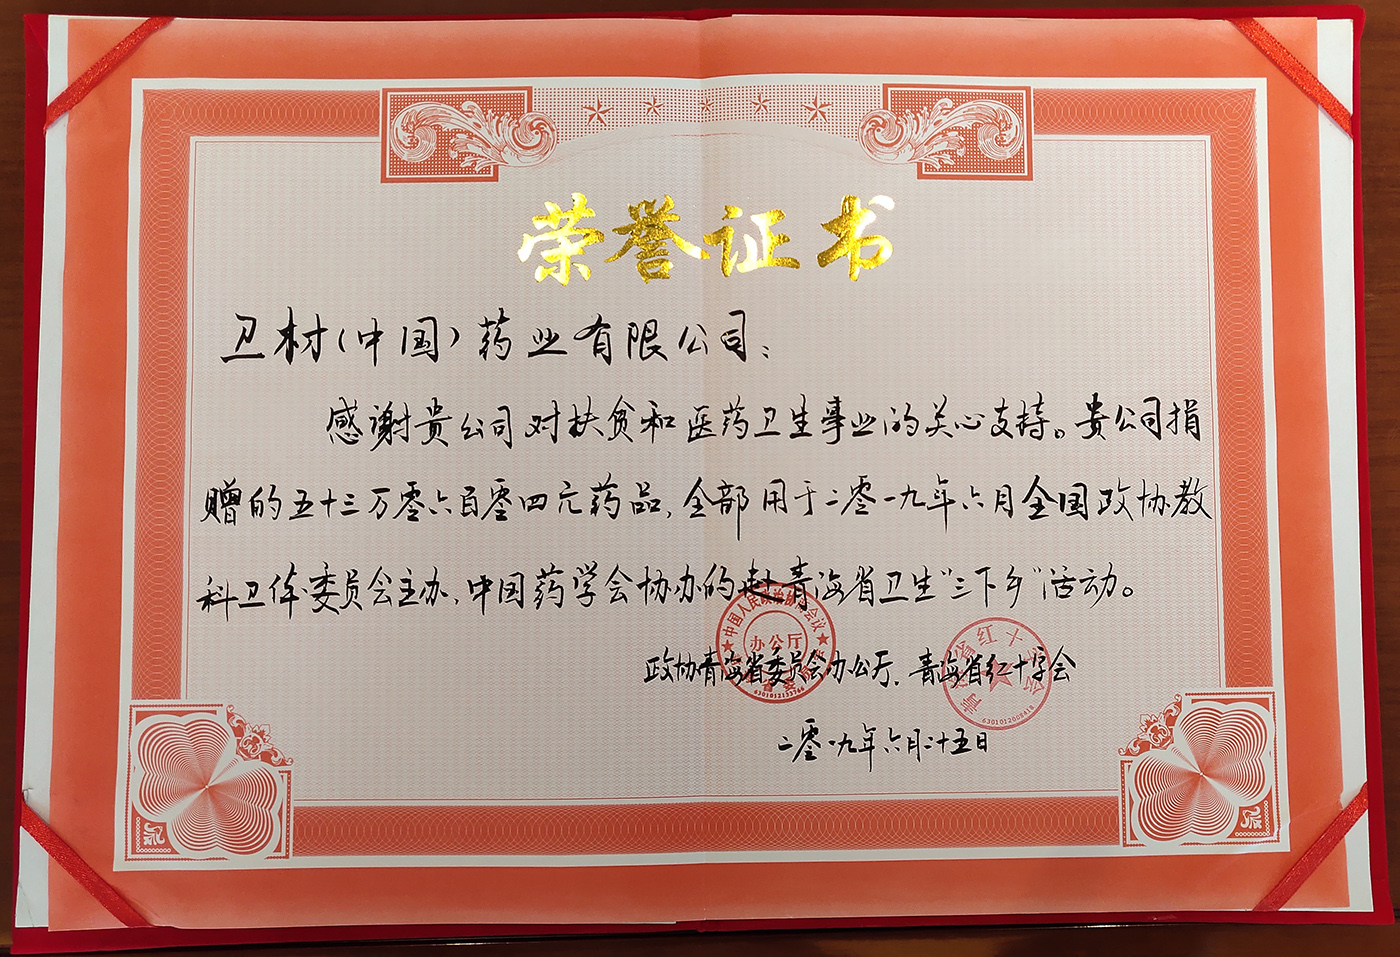 荣誉证书
卫材(中国)药业有限公司:
感谢贵公司对扶贫和医药卫生事业的关心支持。贵公司捐
赠的五十三万零六百零四元药品,全部用于二零一九年六月全国政协教
科卫体委员会主办,中国药学会协办的赴青海省卫生“三下乡”活动。
中国人民政治协商会议
办公厅
6301012133766
政协青海省委员会办公厅、青海省红十字会
青海省红十字会
6301012008418
二零一九年六月二十五日